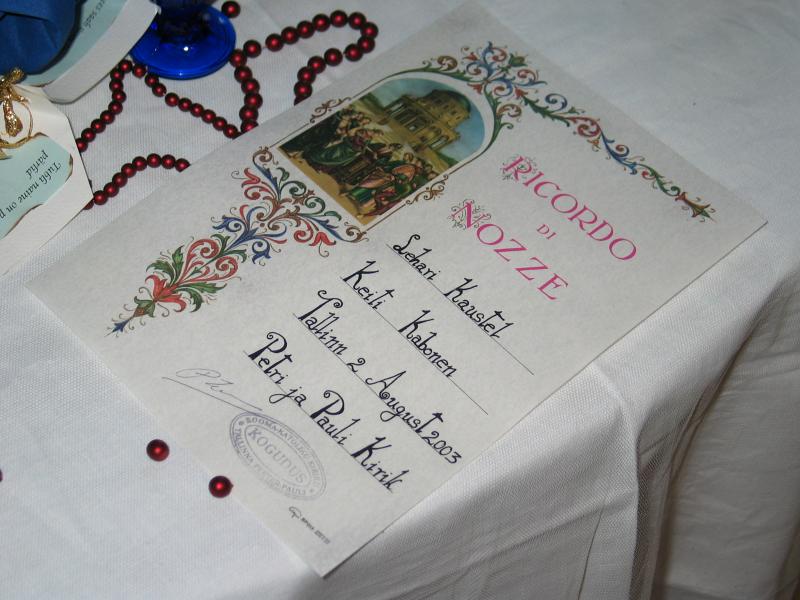 RICORDO
DI
NOZZE
Lehari Kaustel
Keiti Kabonen
Tallinn 2 August 2003
Petri ja Pauli Kirik
ROOMA-KATOLIKU
KOGUDUS
TALLINNA PEETRI-PAULI
Tühi naine on
pärlid